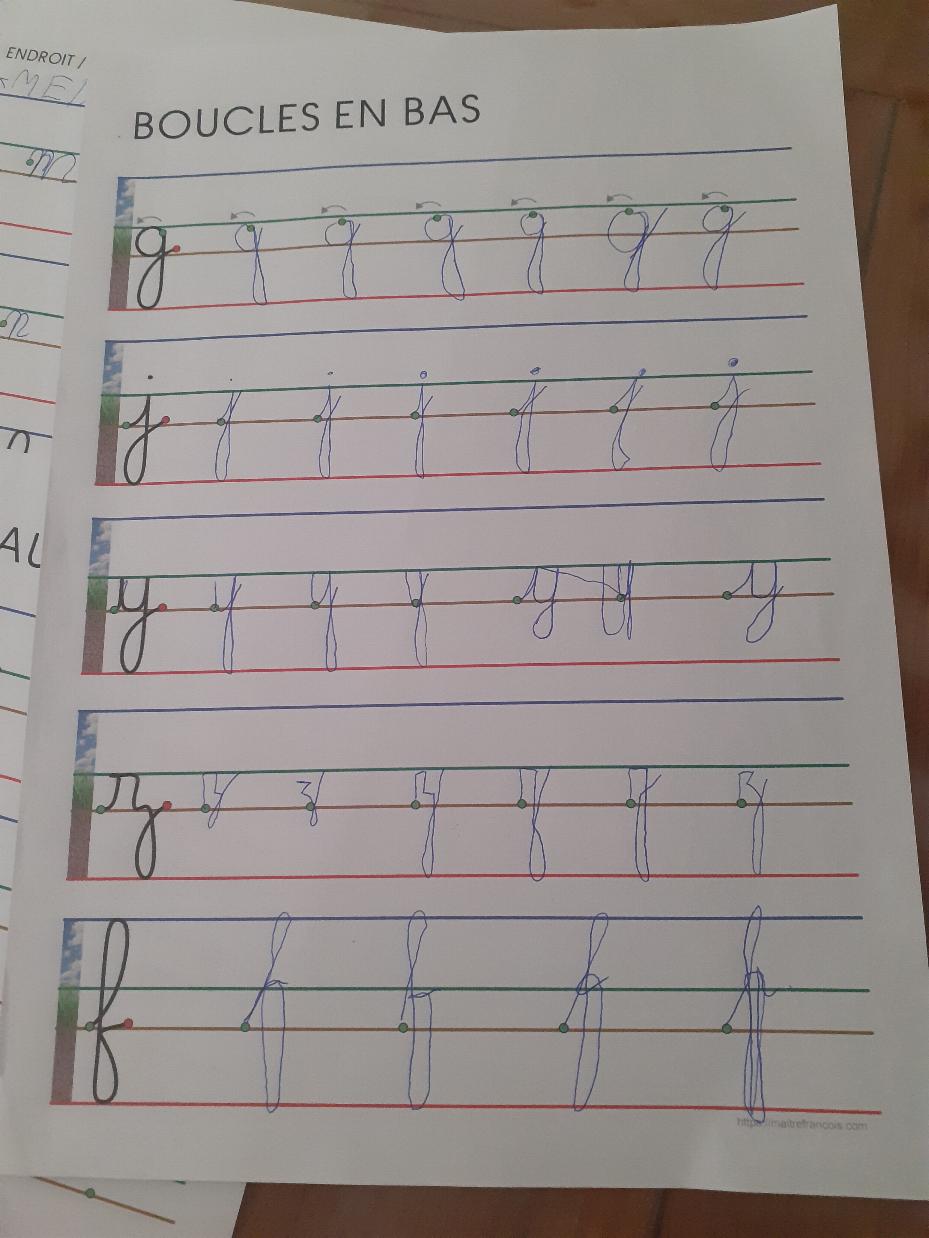 ENDROIT /
MEL
m
n
n
AL
BOUCLES EN BAS
g g g g g g g
j j j j j j j
y y y y y y y
z z z z z z z
f f f f f
https://maitrefrancois.com